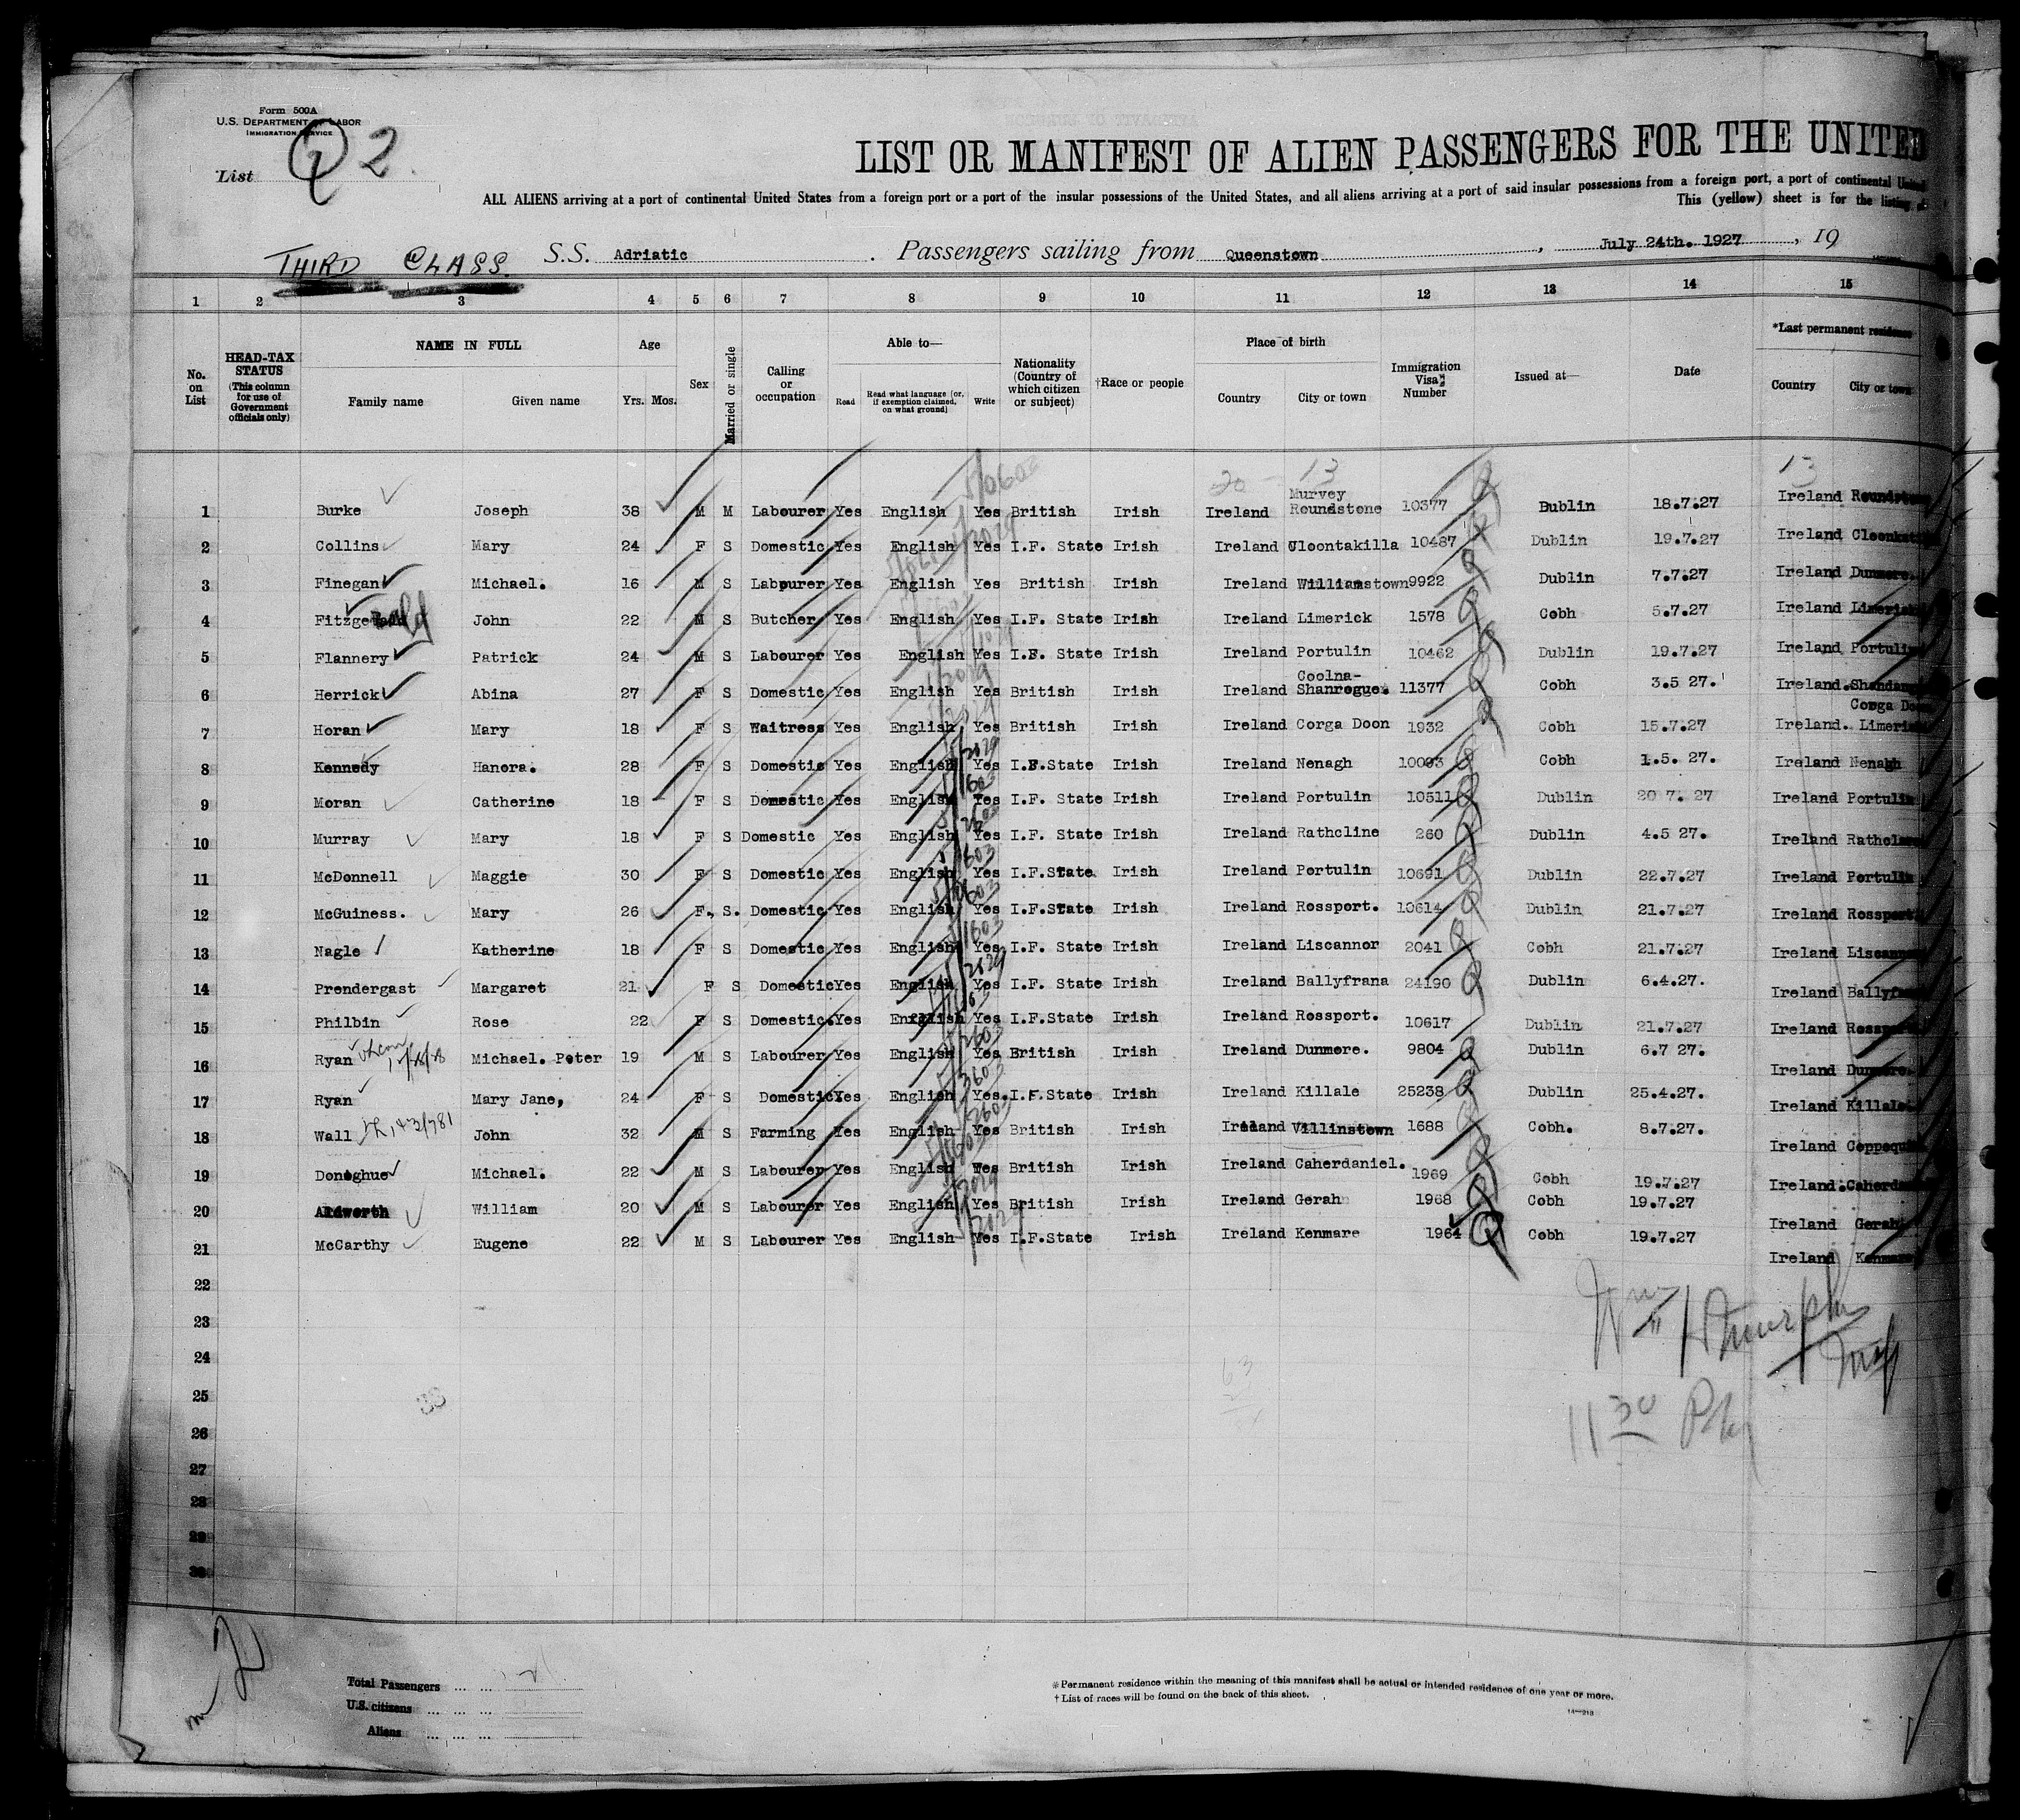 Form 500A
U.S. DEPARTMENT OF LABOR
IMMIGRATION SERVICE
List 2
LIST OR MANIFEST OF ALIEN PASSENGERS FOR THE UNITED
ALL ALIENS arriving at a port of continental United States from a foreign port or a port of the insular possessions of the United States, and all aliens arriving at a port of said insular possessions from a foreign port, a port of continental United
This (yellow) sheet is for the listing of
THIRD CLASS S.S. Adriatic . Passengers sailing from Queenstown , July 24th. 1927 , 19
1 2 3 4 5 6 7 8 9 10 11 12 13 14 15
No. on List
HEAD-TAX STATUS (This column for use of Government officials only)
NAME IN FULL
Family name Given name
Age
Yrs. Mos.
Sex
Married or single
Calling or occupation
Able to—
Read Read what language (or, if exemption claimed, on what ground) Write
Nationality (Country of which citizen or subject)
†Race or people
Place of birth
Country City or town
Immigration Visa Number
Issued at—
Date
*Last permanent residence
Country City or town
20 13 13
1 Burke Joseph 38 M M Labourer Yes English Yes British Irish Ireland Murvey Roundstone 10377 Dublin 18.7.27 Ireland Roundstone
2 Collins Mary 24 F S Domestic Yes English Yes I.F. State Irish Ireland Cloontakilla 10487 Dublin 19.7.27 Ireland
3 Finegan Michael. 16 M S Labourer Yes English Yes British Irish Ireland Williamstown 9922 Dublin 7.7.27 Ireland Dunmore.
4 Fitzgerald John 22 M S Butcher Yes English Yes I.F. State Irish Ireland Limerick 1578 Cobh 5.7.27 Ireland Limerick
5 Flannery Patrick 24 M S Labourer Yes English Yes I.F. State Irish Ireland Portulin 10462 Dublin 19.7.27 Ireland Portulin
6 Herrick Abina 27 F S Domestic Yes English Yes British Irish Ireland Coolna-Shanrogue. 11377 Cobh 3.5 27. Ireland.
7 Horan Mary 18 F S Waitress Yes English Yes British Irish Ireland Corga Doon 1932 Cobh 15.7.27 Ireland. Corga Doon Limerick
8 Kennedy Hanora. 28 F S Domestic Yes English Yes I.F.State Irish Ireland Nenagh 10093 Cobh 1.5. 27. Ireland Nenagh
9 Moran Catherine 18 F S Domestic Yes English Yes I.F. State Irish Ireland Portulin 10511 Dublin 20 7. 27 Ireland Portulin
10 Murray Mary 18 F S Domestic Yes English Yes I.F. State Irish Ireland Rathcline 260 Dublin 4.5 27. Ireland
11 McDonnell Maggie 30 F S Domestic Yes English Yes I.F.State Irish Ireland Portulin 10691 Dublin 22.7.27 Ireland Portulin
12 McGuiness. Mary 26 F. S. Domestic Yes English Yes I.F.State Irish Ireland Rossport. 10614 Dublin 21.7.27 Ireland Rossport
13 Nagle Katherine 18 F S Domestic Yes English Yes I.F. State Irish Ireland Liscannor 2041 Cobh 21.7.27 Ireland Liscannor
14 Prendergast Margaret 21 F S Domestic Yes English Yes I.F. State Irish Ireland Ballyfrana 24190 Dublin 6.4.27. Ireland
15 Philbin Rose 22 F S Domestic. Yes English Yes I.F.State Irish Ireland Rossport. 10617 Dublin 21.7.27 Ireland Rossport
16 Ryan Michael. Peter 19 M S Labourer Yes English Yes British Irish Ireland Dunmore. 9804 Dublin 6.7 27. Ireland Dunmore.
17 Ryan Mary Jane, 24 F S Domestic Yes English Yes. I.F.State Irish Ireland Killale 25238 Dublin 25.4.27. Ireland Killale
18 Wall John 32 M S Farming Yes English Yes British Irish Ireland Villinstown 1688 Cobh. 8.7.27. Ireland
19 Donoghue Michael. 22 M S Labourer Yes English Yes British Irish Ireland Caherdaniel. 1969 Cobh 19.7.27 Ireland.
20 Aldworth William 20 M S Labourer Yes English Yes British Irish Ireland Gerah 1968 Cobh 19.7.27 Ireland Gerah
21 McCarthy Eugene 22 M S Labourer Yes English Yes I.F.State Irish Ireland Kenmare 1964 Cobh 19.7.27 Ireland Kenmare
22
23
24
25
26
27
28
29
30
11 30 PM
Total Passengers ... ... 21
U.S. citizens ... ... ...
Aliens ... ... ...
* Permanent residence within the meaning of this manifest shall be actual or intended residence of one year or more.
† List of races will be found on the back of this sheet.